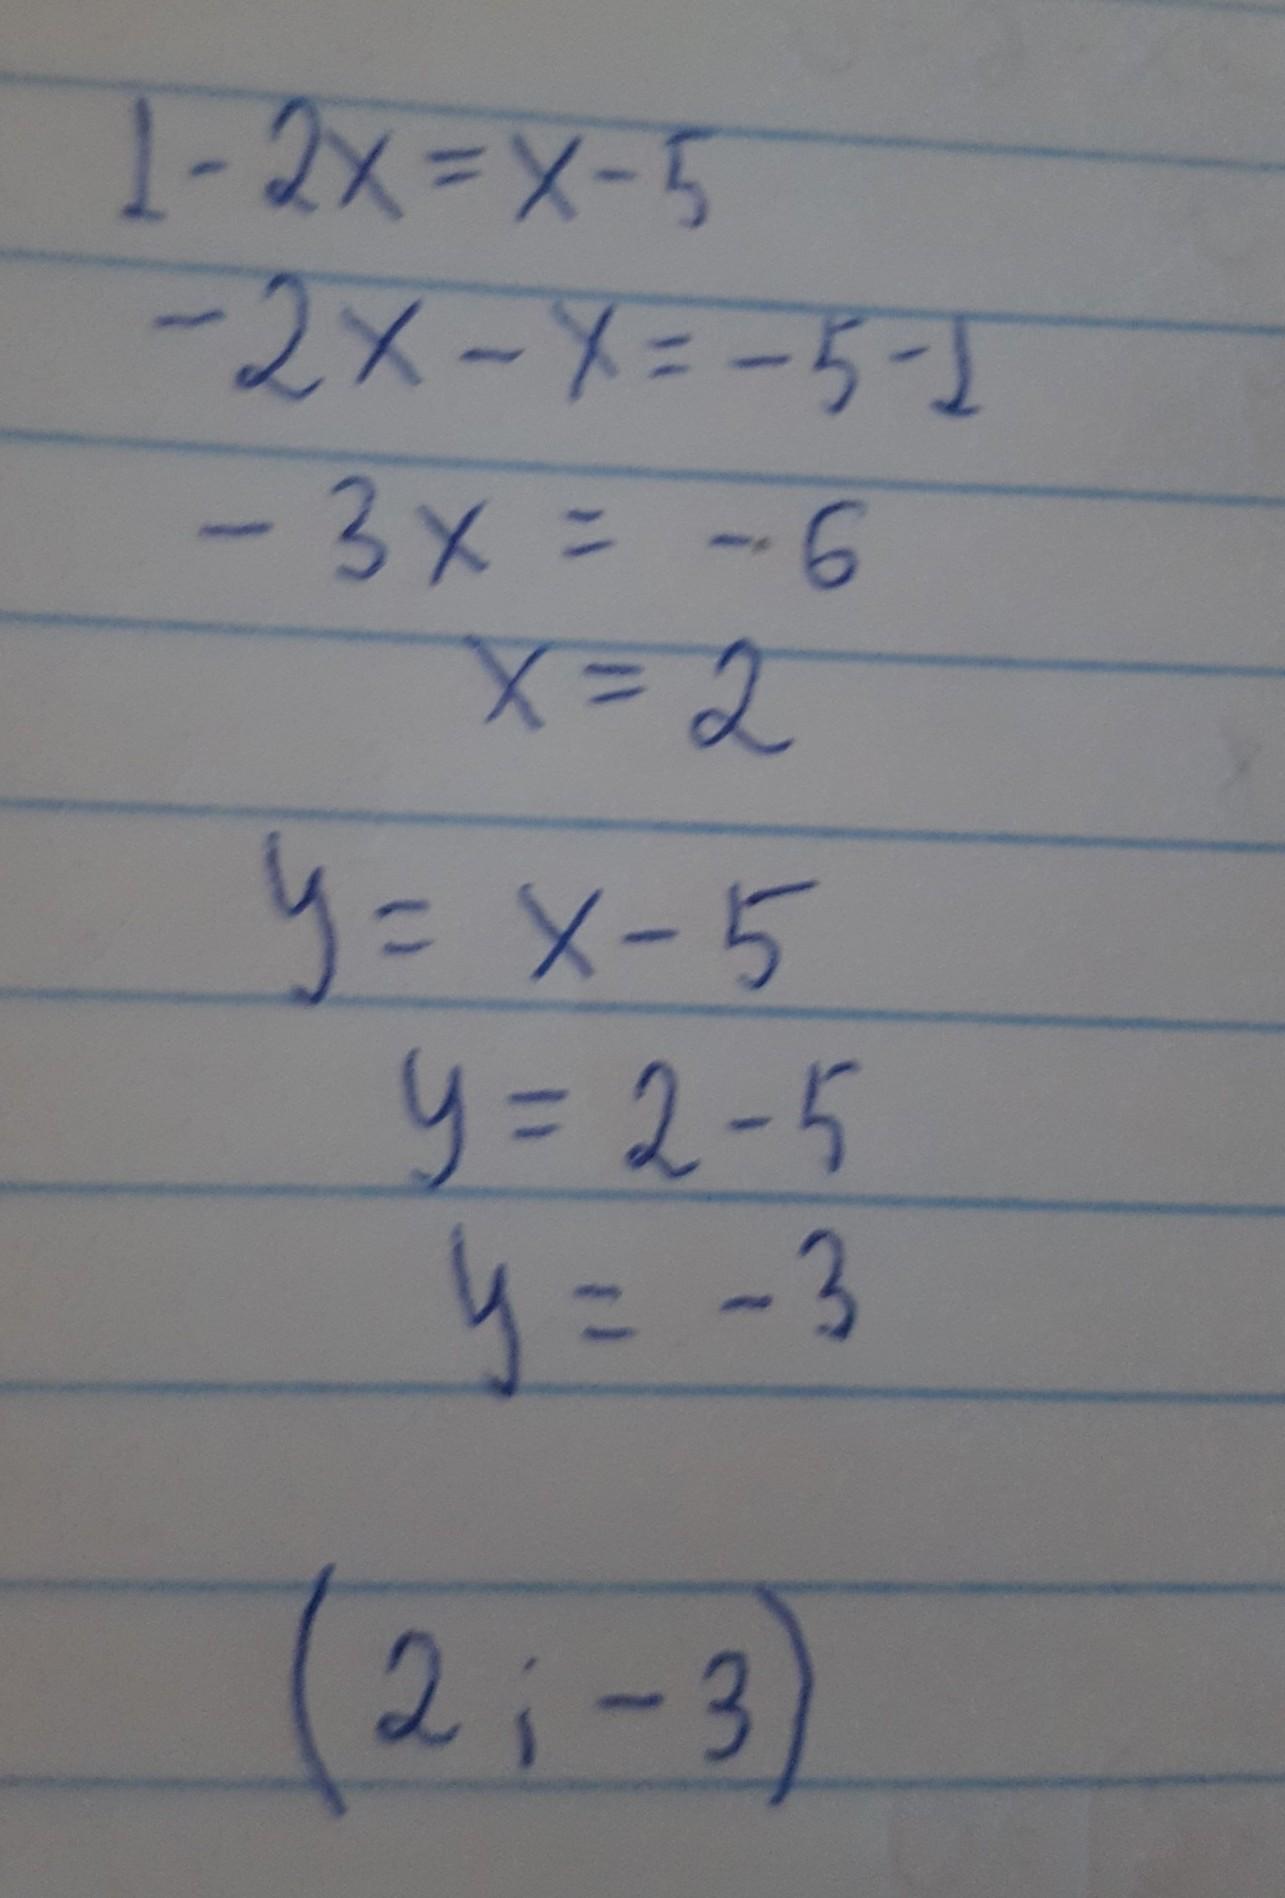 1 - 2x = x - 5
- 2x - x = - 5 - 1
- 3x = - 6
x = 2
y = x - 5
y = 2 - 5
y = - 3
(2 ; - 3)